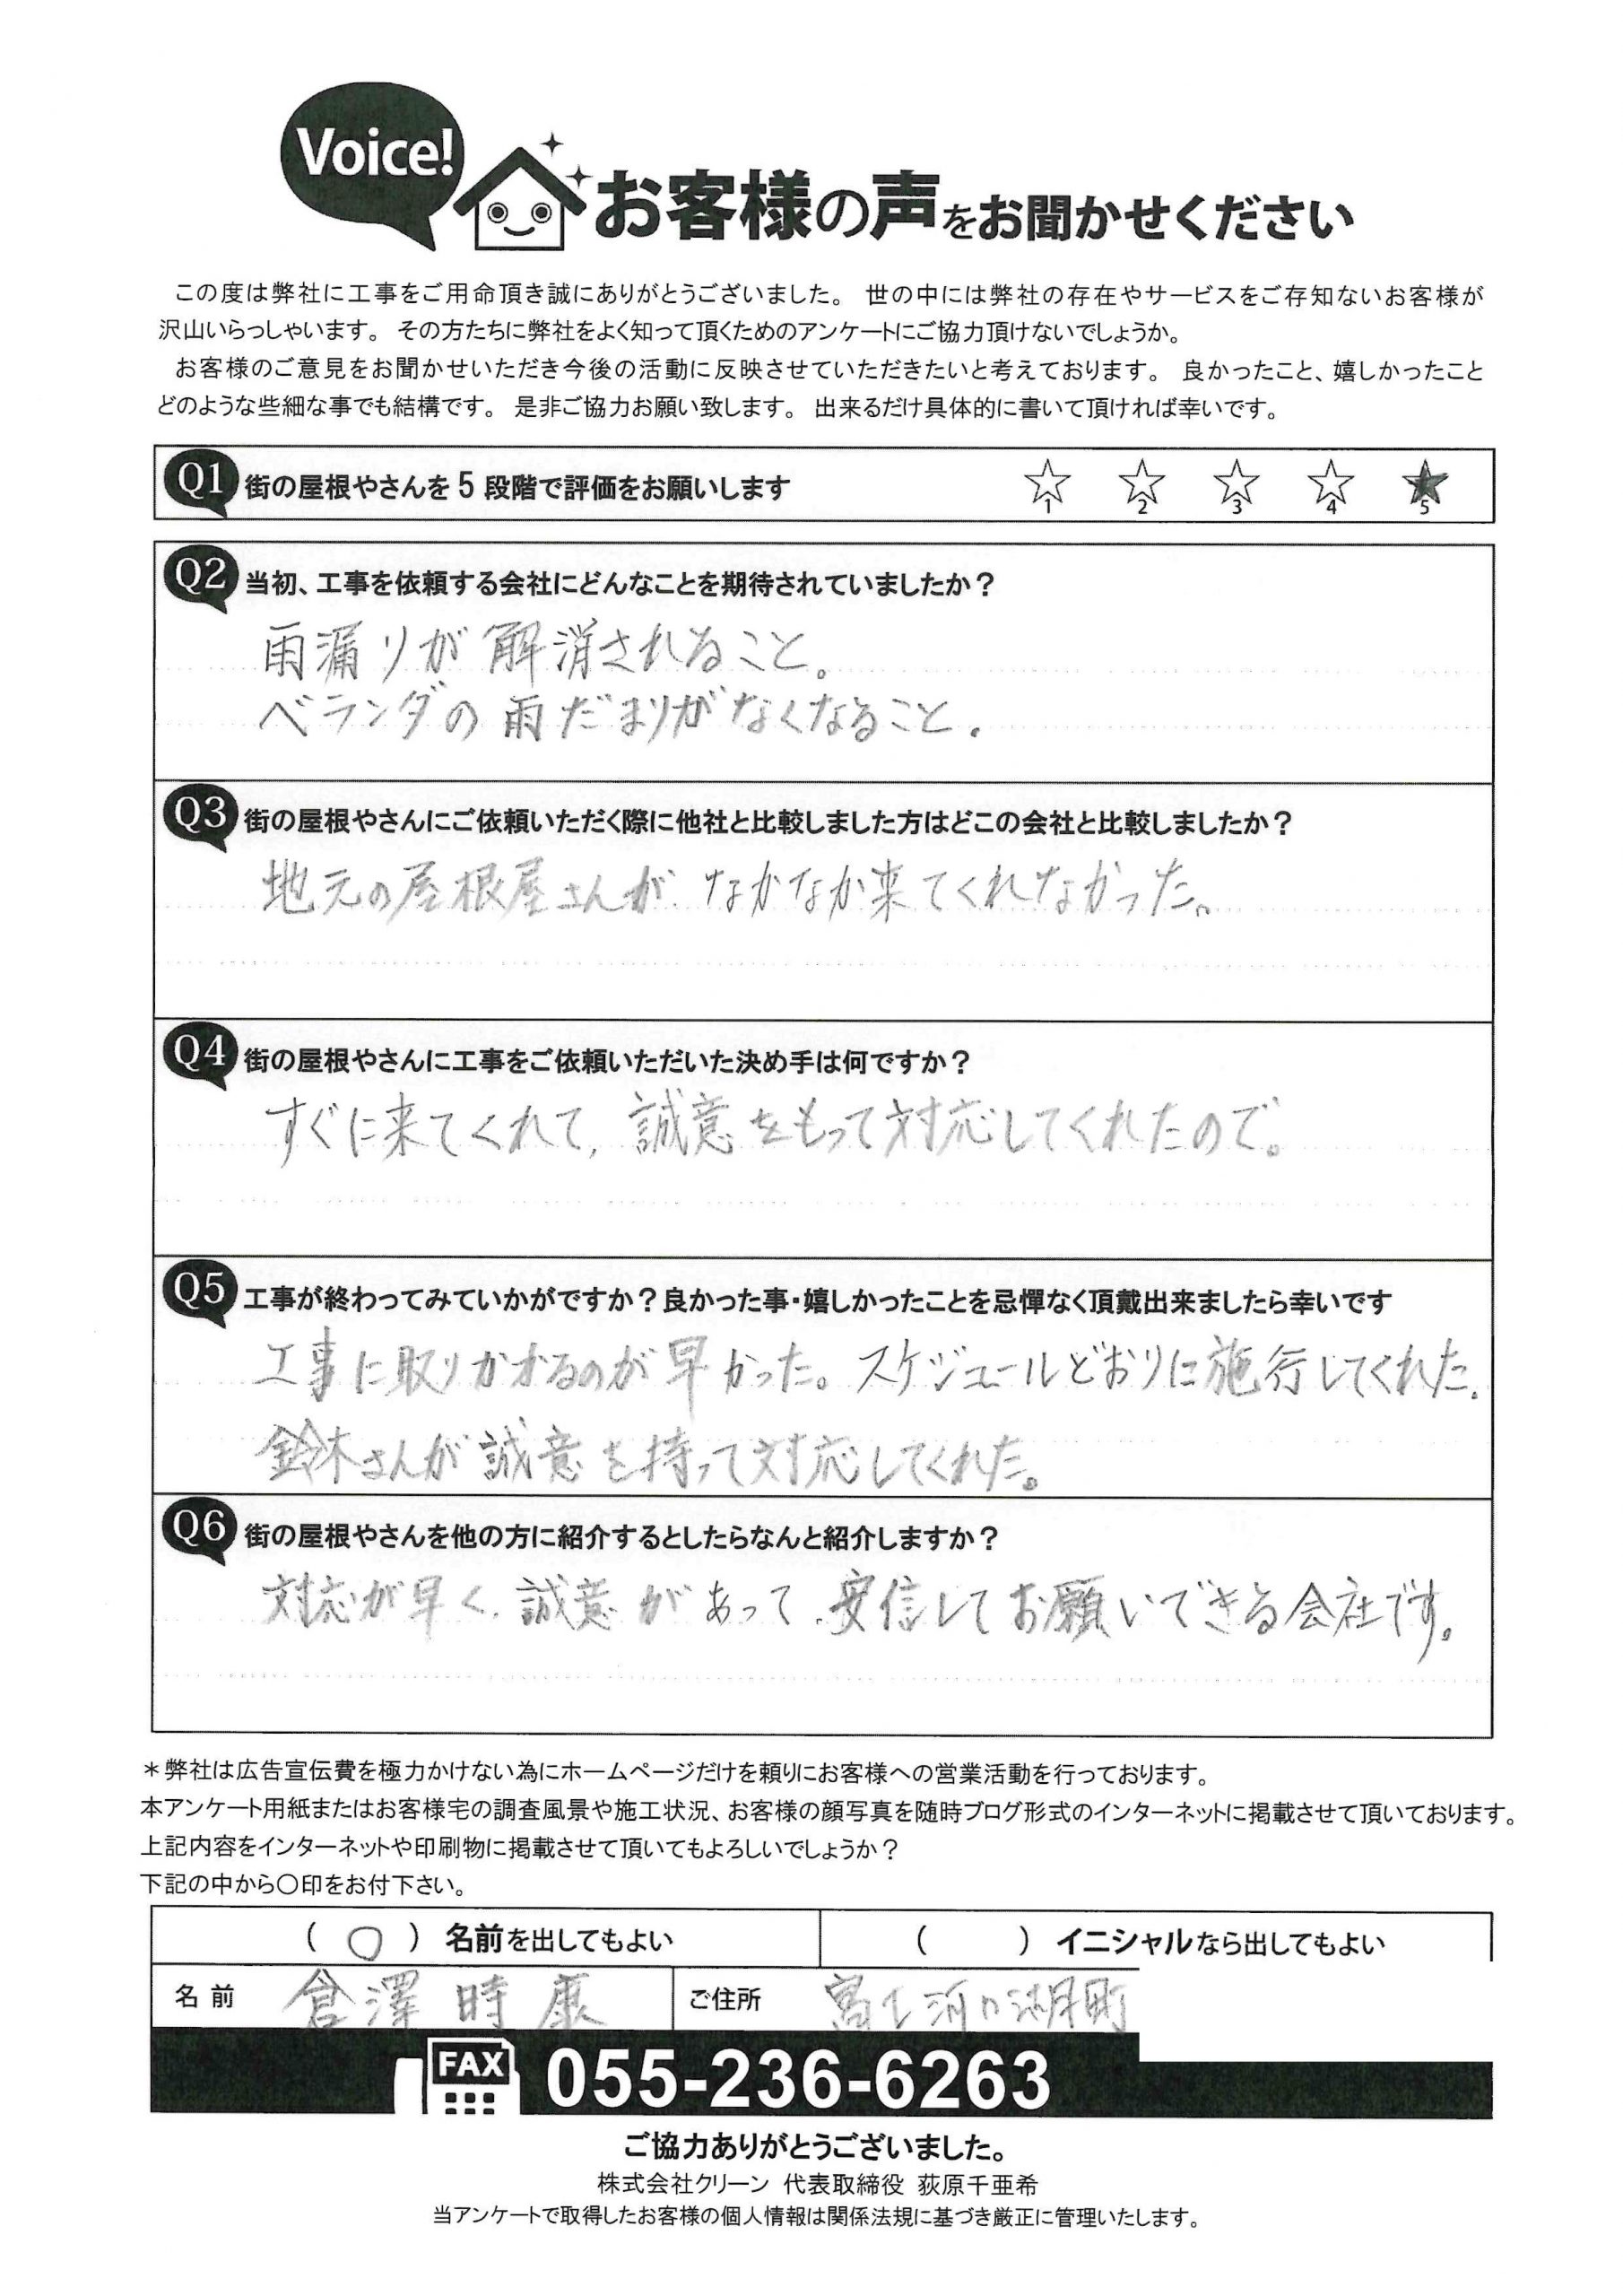 Voice!
お客様の声をお聞かせください
この度は弊社に工事をご用命頂き誠にありがとうございました。 世の中には弊社の存在やサービスをご存知ないお客様が
沢山いらっしゃいます。 その方たちに弊社をよく知って頂くためのアンケートにご協力頂けないでしょうか。
お客様のご意見をお聞かせいただき今後の活動に反映させていただきたいと考えております。 良かったこと、嬉しかったこと
どのような些細な事でも結構です。 是非ご協力お願い致します。 出来るだけ具体的に書いて頂ければ幸いです。
Q1 街の屋根やさんを5段階で評価をお願いします ☆1 ☆2 ☆3 ☆4 ★5
Q2 当初、工事を依頼する会社にどんなことを期待されていましたか？
雨漏りが解消されること。
ベランダの雨だまりがなくなること。
Q3 街の屋根やさんにご依頼いただく際に他社と比較しました方はどこの会社と比較しましたか？
地元の屋根屋さんが、なかなか来てくれなかった。
Q4 街の屋根やさんに工事をご依頼いただいた決め手は何ですか？
すぐに来てくれて、誠意をもって対応してくれたので。
Q5 工事が終わってみていかがですか？良かった事・嬉しかったことを忌憚なく頂戴出来ましたら幸いです
工事に取りかかるのが早かった。スケジュールどおりに施行してくれた。
鈴木さんが誠意を持って対応してくれた。
Q6 街の屋根やさんを他の方に紹介するとしたらなんと紹介しますか？
対応が早く、誠意があって、安信してお願いできる会社です。
＊弊社は広告宣伝費を極力かけない為にホームページだけを頼りにお客様への営業活動を行っております。
本アンケート用紙またはお客様宅の調査風景や施工状況、お客様の顔写真を随時ブログ形式のインターネットに掲載させて頂いております。
上記内容をインターネットや印刷物に掲載させて頂いてもよろしいでしょうか？
下記の中から〇印をお付下さい。
（ 〇 ）名前を出してもよい （ ）イニシャルなら出してもよい
名前 倉澤 時康 ご住所 富士河口湖町
FAX 055-236-6263
ご協力ありがとうございました。
株式会社クリーン 代表取締役 荻原千亜希
当アンケートで取得したお客様の個人情報は関係法規に基づき厳正に管理いたします。